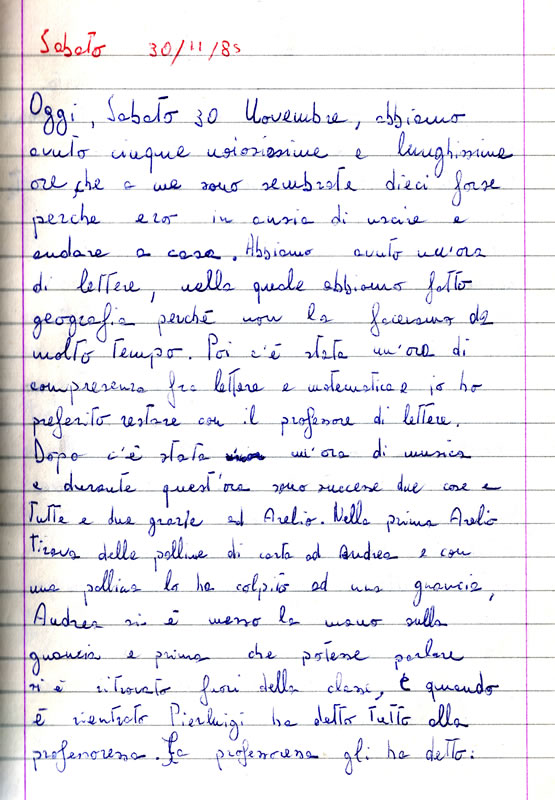 Sabato 30/11/85
Oggi, Sabato 30 Novembre, abbiamo
avuto cinque noiosissime e lunghissime
ore, che a me sono sembrate dieci forse
perche ero in ansia di uscire e
andare a casa. Abbiamo avuto un'ora
di lettere, nella quale abbiamo fatto
geografia perché non la facevamo da
molto tempo. Poi c'è stata un'ora di
compresenza fra lettere e matematica e io ho
preferito restare con il professore di lettere.
Dopo c'è stata un'ora di musica
e durante quest'ora sono successe due cose e
tutte e due grazie ad Arelio. Nella prima Arelio
tirava delle palline di carta ad Andrea e con
una pallina lo ha colpito ad una guancia,
Andrea si è messo la mano sulla
guancia e prima che potesse parlare
si è ritrovato fuori della classe, e quando
è rientrato Pierluigi ha detto tutto alla
professoressa. La professoressa gli ha detto: